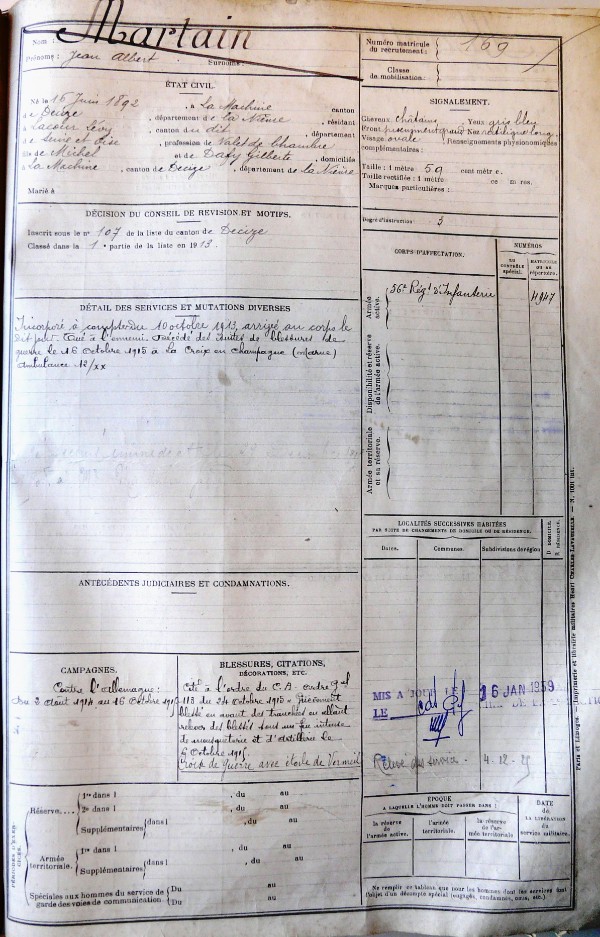 Nom : Martain
Prénoms : Jean Albert Surnoms :
ÉTAT CIVIL.
Né le 16 Juin 1892, à La Machine canton
d e Decize, département de la Nièvre, résidant
à Lacour Lévy, canton du dit, département
de Seine et Oise, profession de Valet de Chambre
fils de Michel et de Dafy Gilberte domiciliés
à La Machine, canton de Decize, département de la Nièvre
Marié à
DÉCISION DU CONSEIL DE REVISION ET MOTIFS.
Inscrit sous le no 107 de la liste du canton de Decize
Classé dans la 1e partie de la liste en 1913.
DÉTAIL DES SERVICES ET MUTATIONS DIVERSES
Incorporé à compter du 10 octobre 1913, arrivé au corps le
dit jour. Tué à l'ennemi. Décédé des suites de blessures de
guerre le 16 Octobre 1915 à la Croix en Champagne (Marne)
Ambulance 12/xx
ANTÉCÉDENTS JUDICIAIRES ET CONDAMNATIONS.
CAMPAGNES.
Contre l'Allemagne :
du 2 août 1914 au 16 Octobre 1915
BLESSURES, CITATIONS,
DÉCORATIONS, ETC.
Cité à l'ordre du C.A. ordre Gal
113 du 24 Octobre 1915 "Grièvement
blessé en avant des tranchées en allant
relever des blessés sous un feu intense
de mousqueterie et d'artillerie le
6 Octobre 1915.
Croix de Guerre avec étoile de Vermeil
PÉRIODES D'EXERCICES.
Réserve.... 1re dans l , du au
2e dans l , du au
Supplémentaires dans l , du au
Armée territoriale. 1re dans l , du au
Supplémentaires dans l , du au
Spéciales aux hommes du service de garde des voies de communication. Du au
Du au
Numéro matricule du recrutement : 169
Classe de mobilisation :
SIGNALEMENT.
Cheveux châtains Yeux gris bleu
Front Nez rectiligne long
Visage ovale Renseignements physionomiques
complémentaires :
Taille : 1 mètre 59 centimètres.
Taille rectifiée : 1 mètre centimètres.
Marques particulières :
Degré d'instruction : 3
CORPS D'AFFECTATION. NUMÉROS
au contrôle spécial. matricule ou au répertoire.
Armée active. 56e Régt d'Infanterie 4947
Disponibilité et réserve de l'armée active.
Armée territoriale et sa réserve.
LOCALITÉS SUCCESSIVES HABITÉES
PAR SUITE DE CHANGEMENTS DE DOMICILE OU DE RÉSIDENCE.
D. DOMICILE. R. RÉSIDENCE.
Dates. Communes. Subdivisions de région
MIS A JOUR LE 16 JAN 1959
LE
Relevé des services 4-12-
ÉPOQUE
A LAQUELLE L'HOMME DOIT PASSER DANS :
la réserve de l'armée active. l'armée territoriale. la réserve de l'armée territoriale
DATE de LA LIBÉRATION du service militaire.
Ne remplir ce tableau que pour les hommes dont les services font
l'objet d'un décompte spécial (engagés, condamnés, omis, etc.)
Paris et Limoges. — Imprimerie et librairie militaires Henri CHARLES-LAVAUZELLE